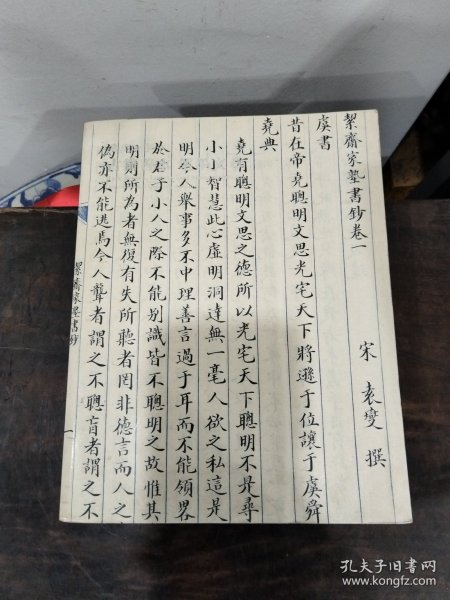 絜齋家塾書鈔卷一
宋 袁燮 撰
虞書
昔在帝堯聰明文思光宅天下將遜于位讓于虞舜
堯典
堯有聰明文思之德所以光宅天下聰明不是尋
小小智慧此心虛明洞達無一毫人欲之私這是
明今人舉事多不中理善言過于耳而不能領畧
於君子小人之際不能別識皆不聰明之故惟其
明則所為者無復有失所聽者罔非德言而人之
偽亦不能逃焉今人聾者謂之不聰盲者謂之不
絜齋家塾書鈔
一
孔夫子旧书网
www.kongfz.com